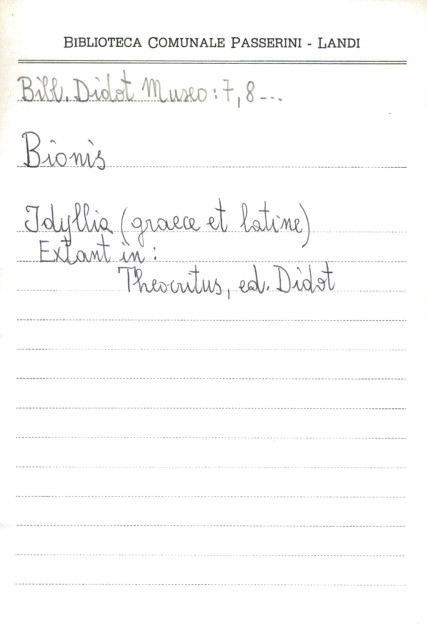 BIBLIOTECA COMUNALE PASSERINI - LANDI
Bibl. Didot Museo: 7, 8 ---
Bionis
Idyllia (graece et latine)
Extant in:
Theocritus, ed. Didot